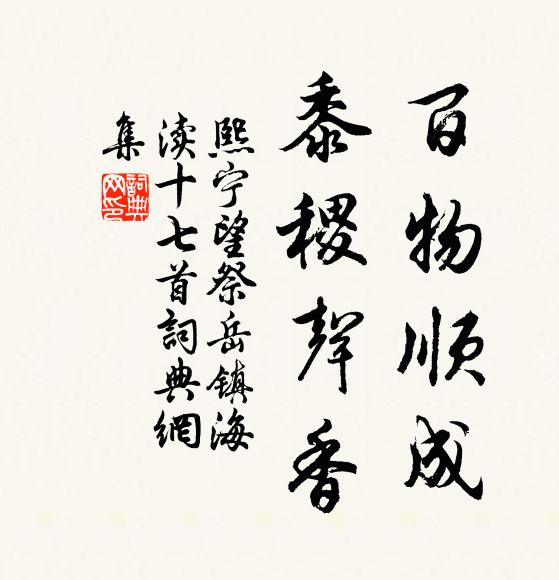 百物顺成
黍稷聲香
熙宁望祭岳镇海
渎十七首詞典網
集
詞典網印